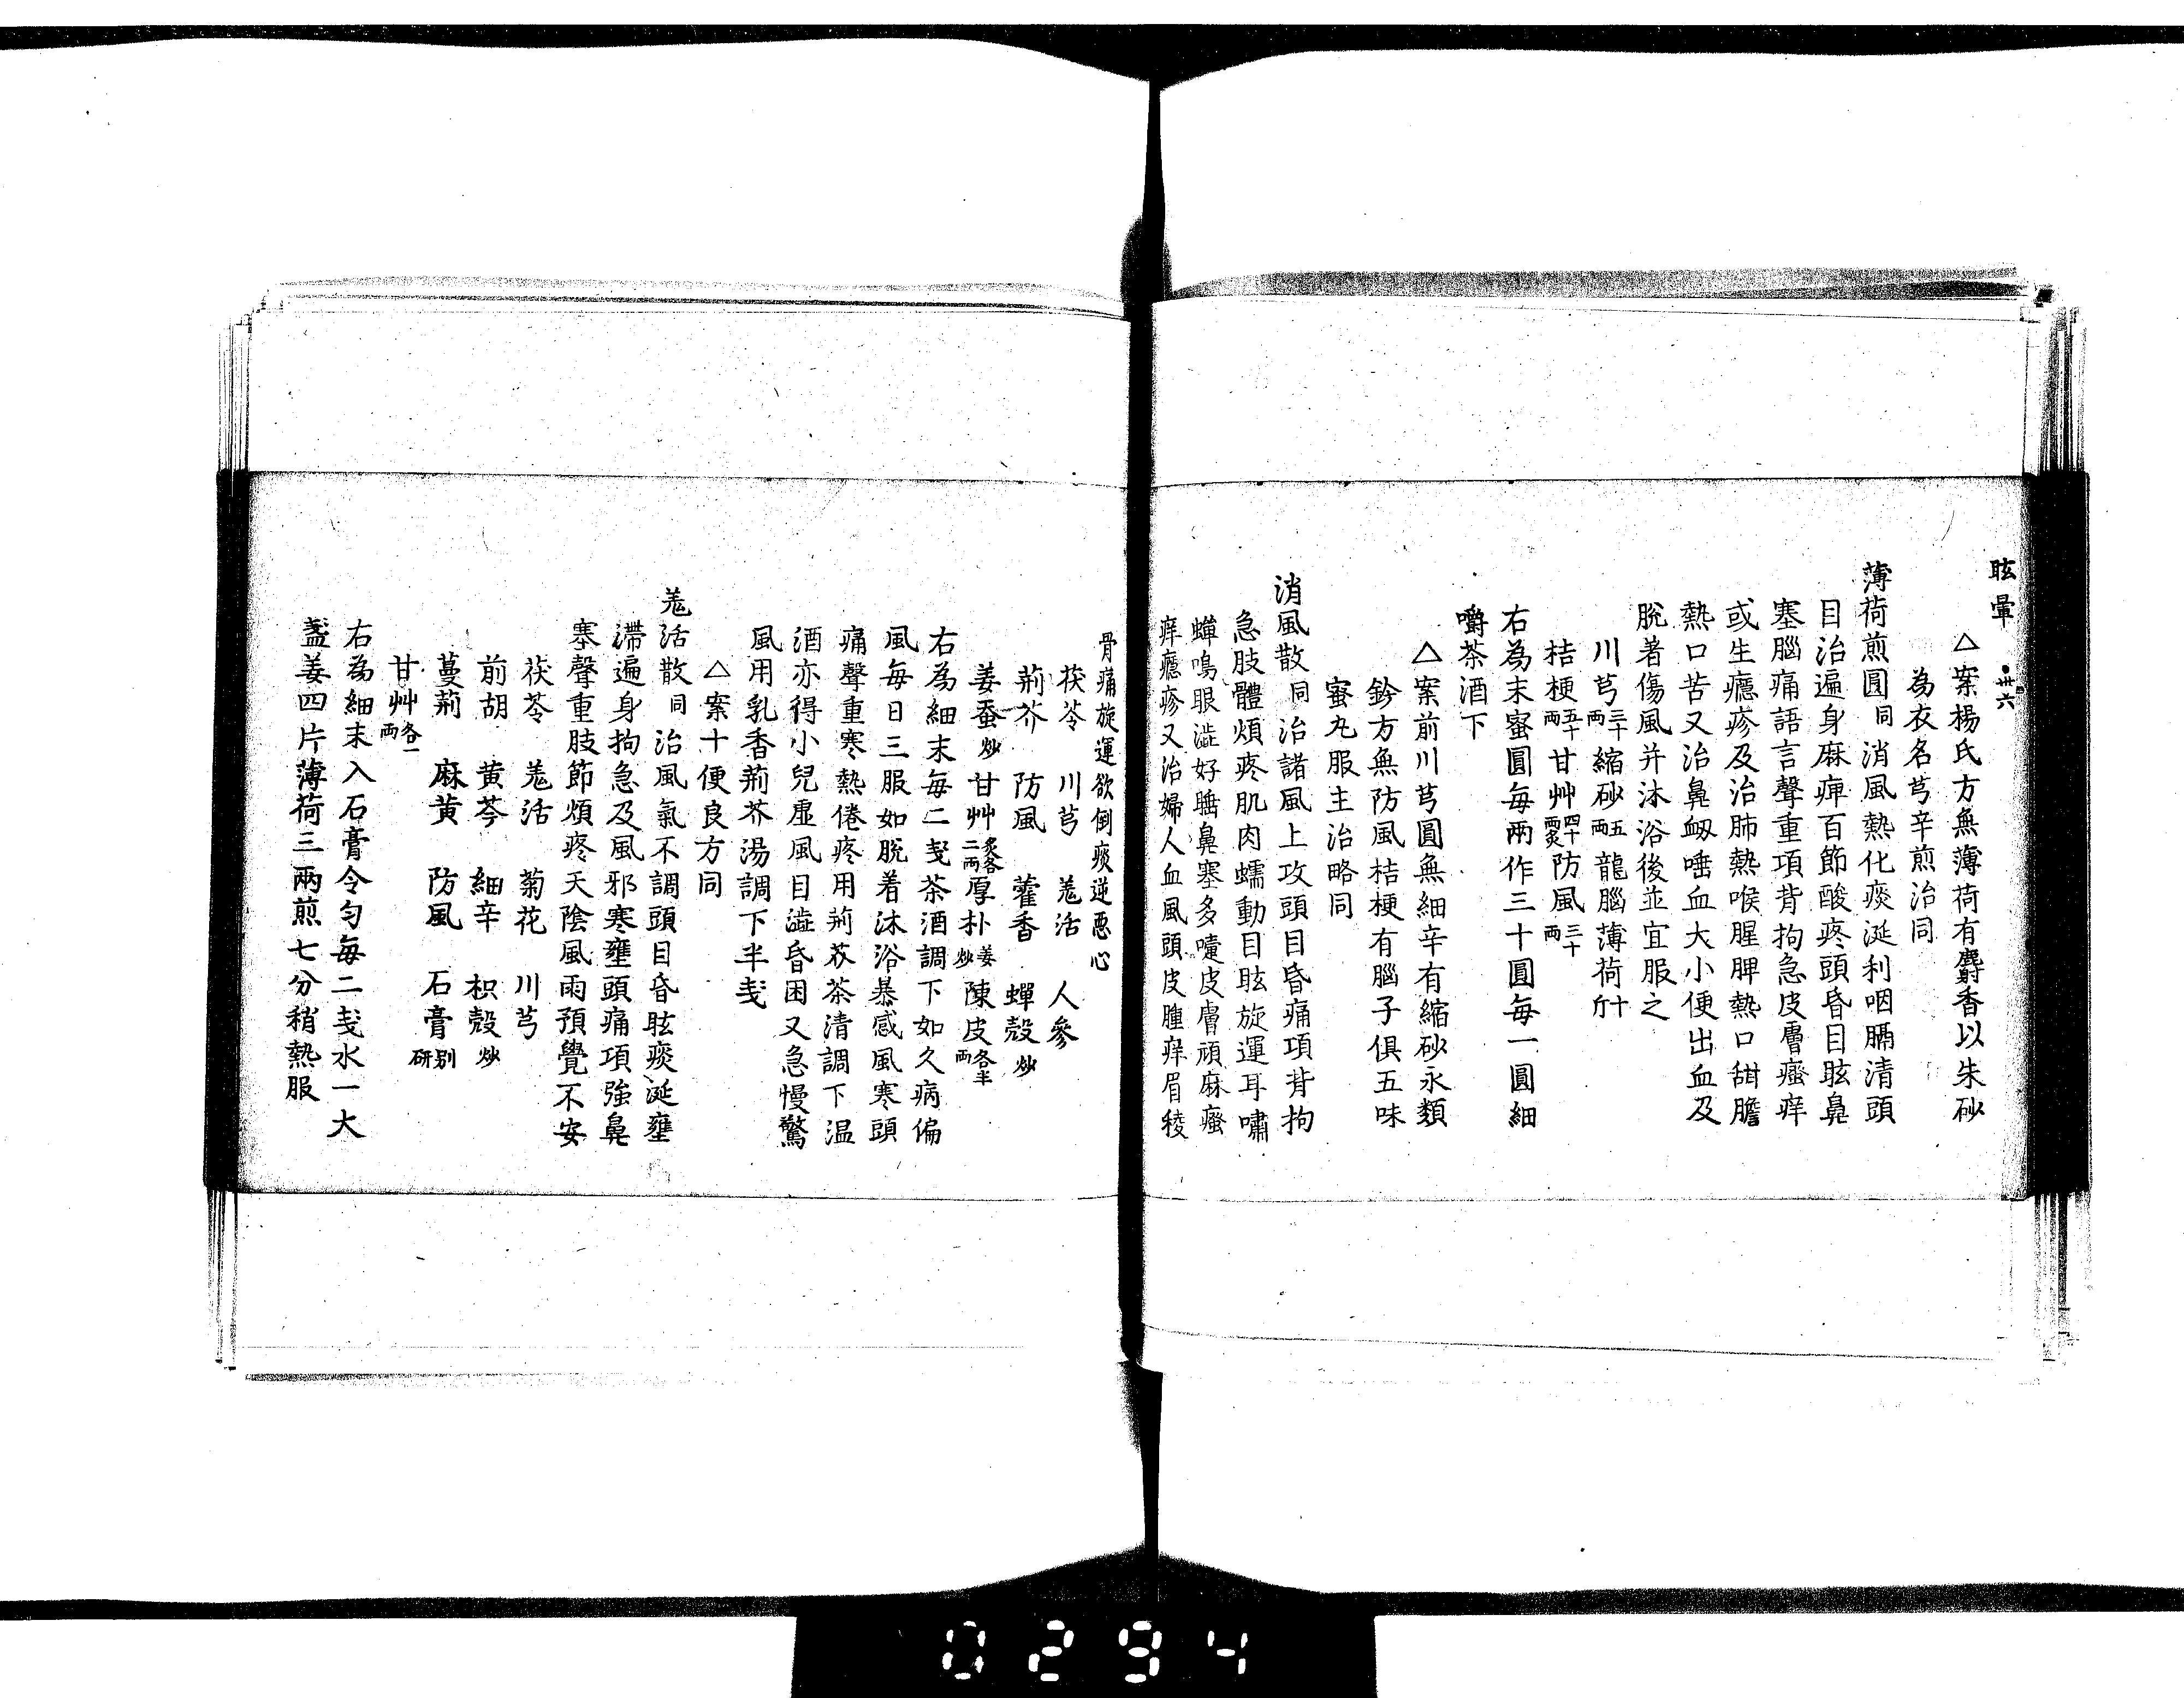 眩暈 卅六
△案楊氏方無薄荷有麝香以朱砂
為衣名芎辛煎治同
薄荷煎圓同消風熱化痰涎利咽膈清頭
目治遍身麻痺百節酸疼頭昏目眩鼻
塞腦痛語言聲重項背拘急皮膚瘙痒
或生癮疹及治肺熱喉腥脾熱口甜膽
熱口苦又治鼻衂唾血大小便出血及
脫著傷風并沐浴後並宜服之
川芎三十兩縮砂五兩龍腦薄荷十斤
桔梗五十兩甘艸四十兩炙防風三十兩
右為末蜜圓每兩作三十圓每一圓細
嚼茶酒下
△案前川芎圓無細辛有縮砂永類
鈐方無防風桔梗有腦子俱五味
蜜丸服主治略同
消風散同治諸風上攻頭目昏痛項背拘
急肢體煩疼肌肉蠕動目眩旋運耳嘯
蟬鳴眼澁好睡鼻塞多嚏皮膚頑麻瘙
痒癮疹又治婦人血風頭皮腫痒眉稜
骨痛旋運欲倒痰逆惡心
茯苓 川芎 羗活 人參
荊芥 防風 藿香 蟬殼炒
姜蚕炒甘艸炙各二兩厚朴姜炒陳皮各半兩
右為細末每二戔茶酒調下如久病偏
風每日三服如脫着沐浴暴感風寒頭
痛聲重寒熱倦疼用荊芥茶清調下温
酒亦得小兒虛風目澁昏困又急慢驚
風用乳香荊芥湯調下半戔
△案十便良方同
羗活散同治風氣不調頭目昏眩痰涎壅
滯遍身拘急及風邪寒壅頭痛項強鼻
塞聲重肢節煩疼天陰風雨預覺不安
茯苓 羗活 菊花 川芎
前胡 黄芩 細辛 枳殼炒
蔓荊 麻黄 防風 石膏别研
甘艸各一兩
右為細末入石膏令匀每二戔水一大
盞姜四片薄荷三兩煎七分稍熱服
0294